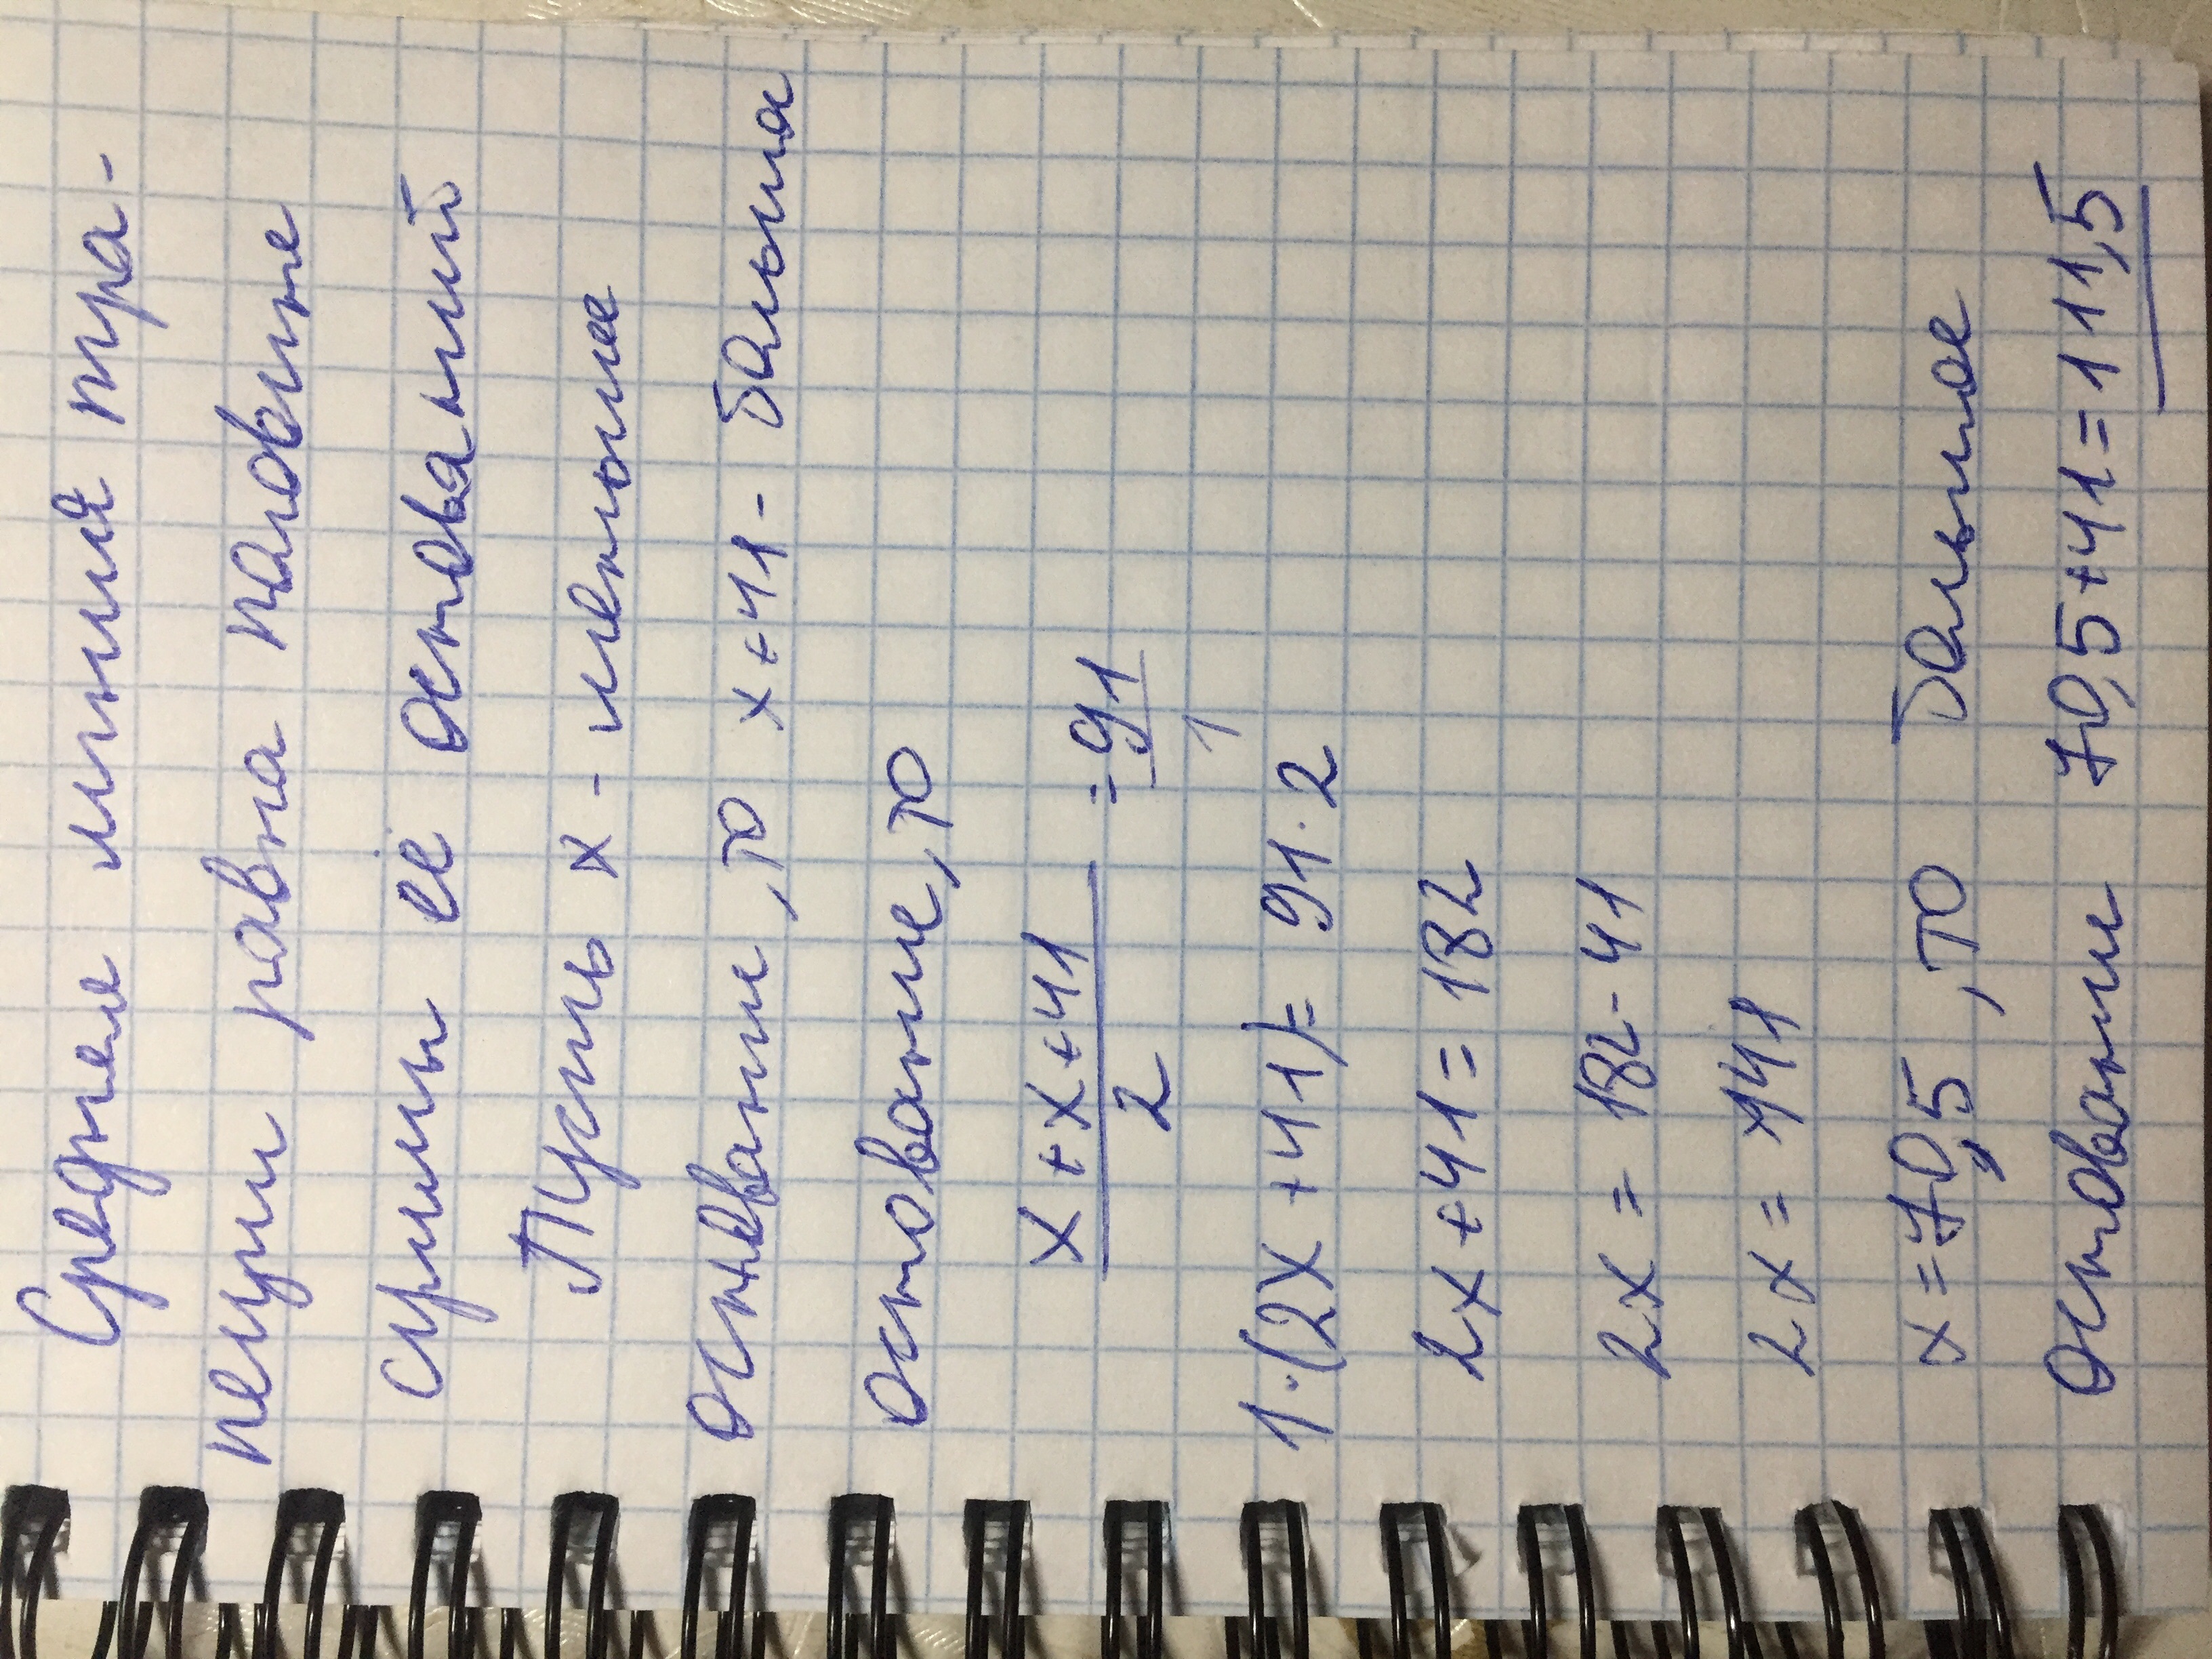 Средняя линия тра-
пеции равна половине
суммы её оснований
Пусть х - меньшее
основание, то х+41 - больша
основание, то
х+х+41 = 91
2 1
1·(2х+41)= 91·2
2х+41=182
2х = 182-41
2х = 141
х=70,5, то большое
основание 70,5+41=111,5